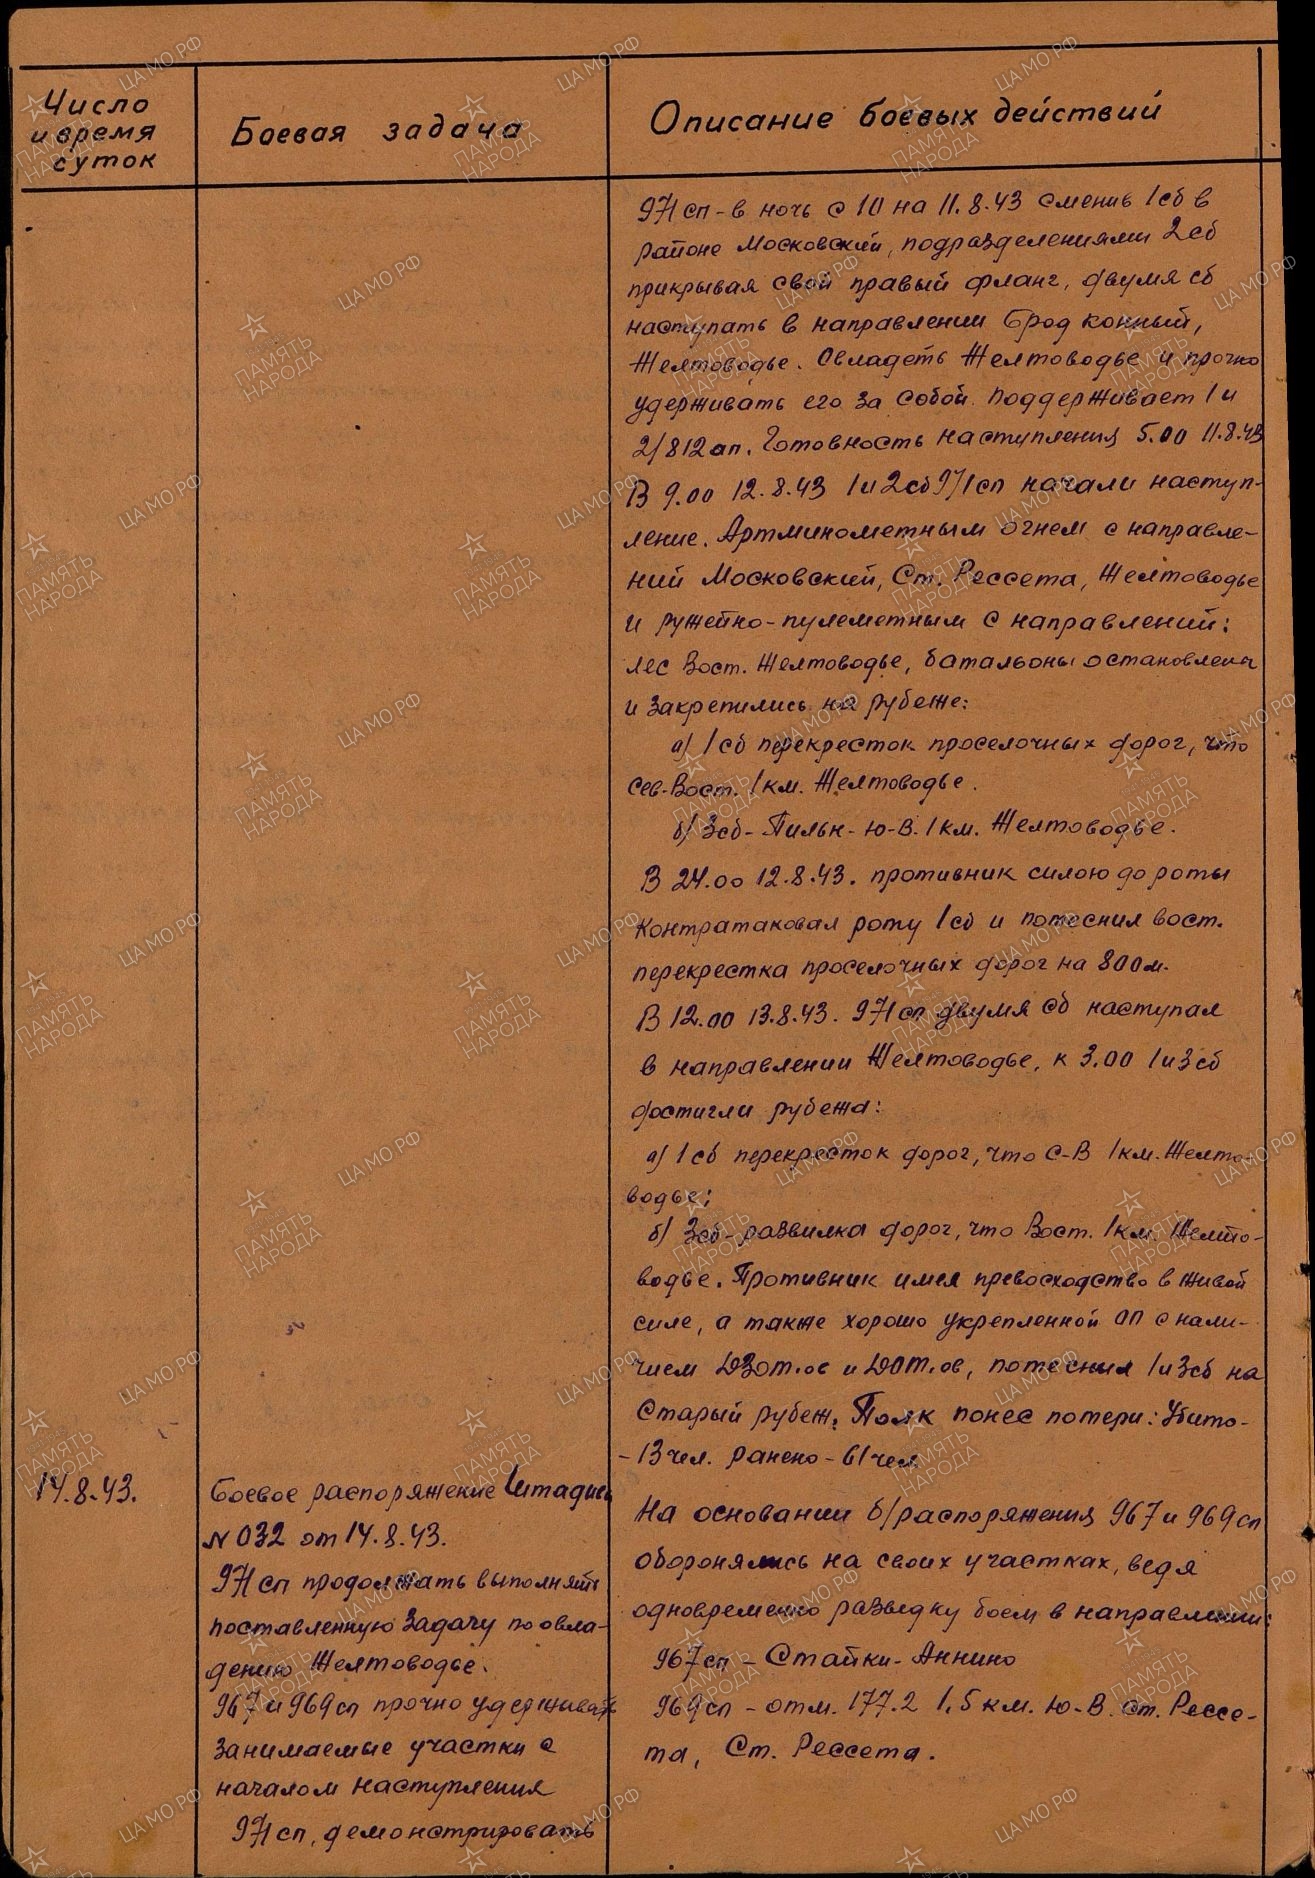 Число
и время
суток
Боевая задача
Описание боевых действий
971 сп - в ночь с 10 на 11.8.43 сменив 1 сб в
районе Московский, подразделениями 2 сб
прикрывая свой правый фланг, двумя сб
наступать в направлении Брод конный,
Желтоводье. Овладеть Желтоводье и прочно
удерживать его за собой. Поддерживает 1 и
2/812 ап. Готовность наступления 5.00 11.8.43
В 9.00 12.8.43 1 и 2 сб 971 сп начали наступ-
ление. Артминометным огнем с направле-
ний Московский, Ст. Рессета, Желтоводье
и ружейно-пулеметным с направлений:
лес Вост. Желтоводье, батальоны остановлены
и закрепились на рубеже:
а) 1 сб перекресток проселочных дорог, что
Сев-Вост. 1 км. Желтоводье.
б) 3 сб - Пильн - Ю-В. 1 км. Желтоводье.
В 24.00 12.8.43. противник силою до роты
контратаковал роту 1 сб и потеснил вост.
перекрестка проселочных дорог на 800 м.
В 12.00 13.8.43. 971 сп двумя сб наступал
в направлении Желтоводье, к 3.00 1 и 3 сб
достигли рубежа:
а) 1 сб перекресток дорог, что С-В 1 км. Желто-
водье;
б) 3 сб - развилка дорог, что Вост. 1 км. Желто-
водье. Противник имея превосходство в живой
силе, а также хорошо укрепленной ОП с нали-
чием ДЗОТ.ов и ДОТ.ов, потеснил 1 и 3 сб на
старый рубеж. Полк понес потери: Убито-
- 13 чел. ранено - 61 чел.
14.8.43.
Боевое распоряжение Штадива
N 032 от 14.8.43.
971 сп продолжать выполнять
поставленную задачу по овла-
дению Желтоводье.
967 и 969 сп прочно удерживать
занимаемые участки с
началом наступления
971 сп, демонстрировать
На основании б/распоряжения 967 и 969 сп
оборонялись на своих участках, ведя
одновременно разведку боем в направлении:
967 сп - Стайки - Аннино
969 сп - отм. 177.2 1,5 км. Ю-В. Ст. Рессе-
та, Ст. Рессета.
ПАМЯТЬ НАРОДА
ЦА МО РФ